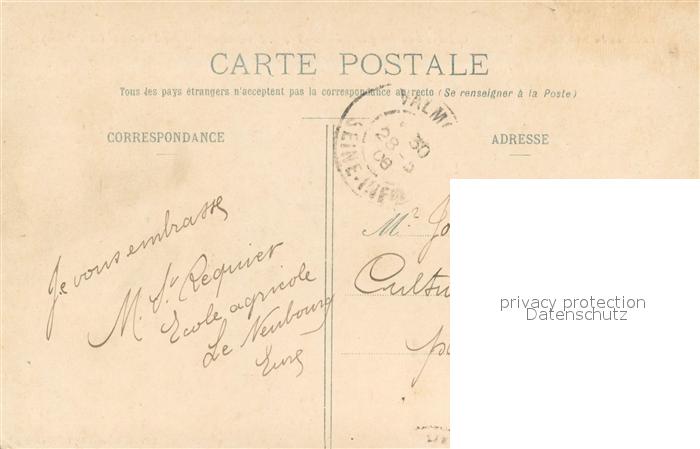 CARTE POSTALE
Tous les pays étrangers n'acceptent pas la correspondance au recto (Se renseigner à la Poste)
CORRESPONDANCE
ADRESSE
VALM
30
28
08
SEINE-INF
Je vous embrasse
M. St Requier
Ecole agricole
Le Neubourg
Eure
Mr
Cultu
privacy protection
Datenschutz